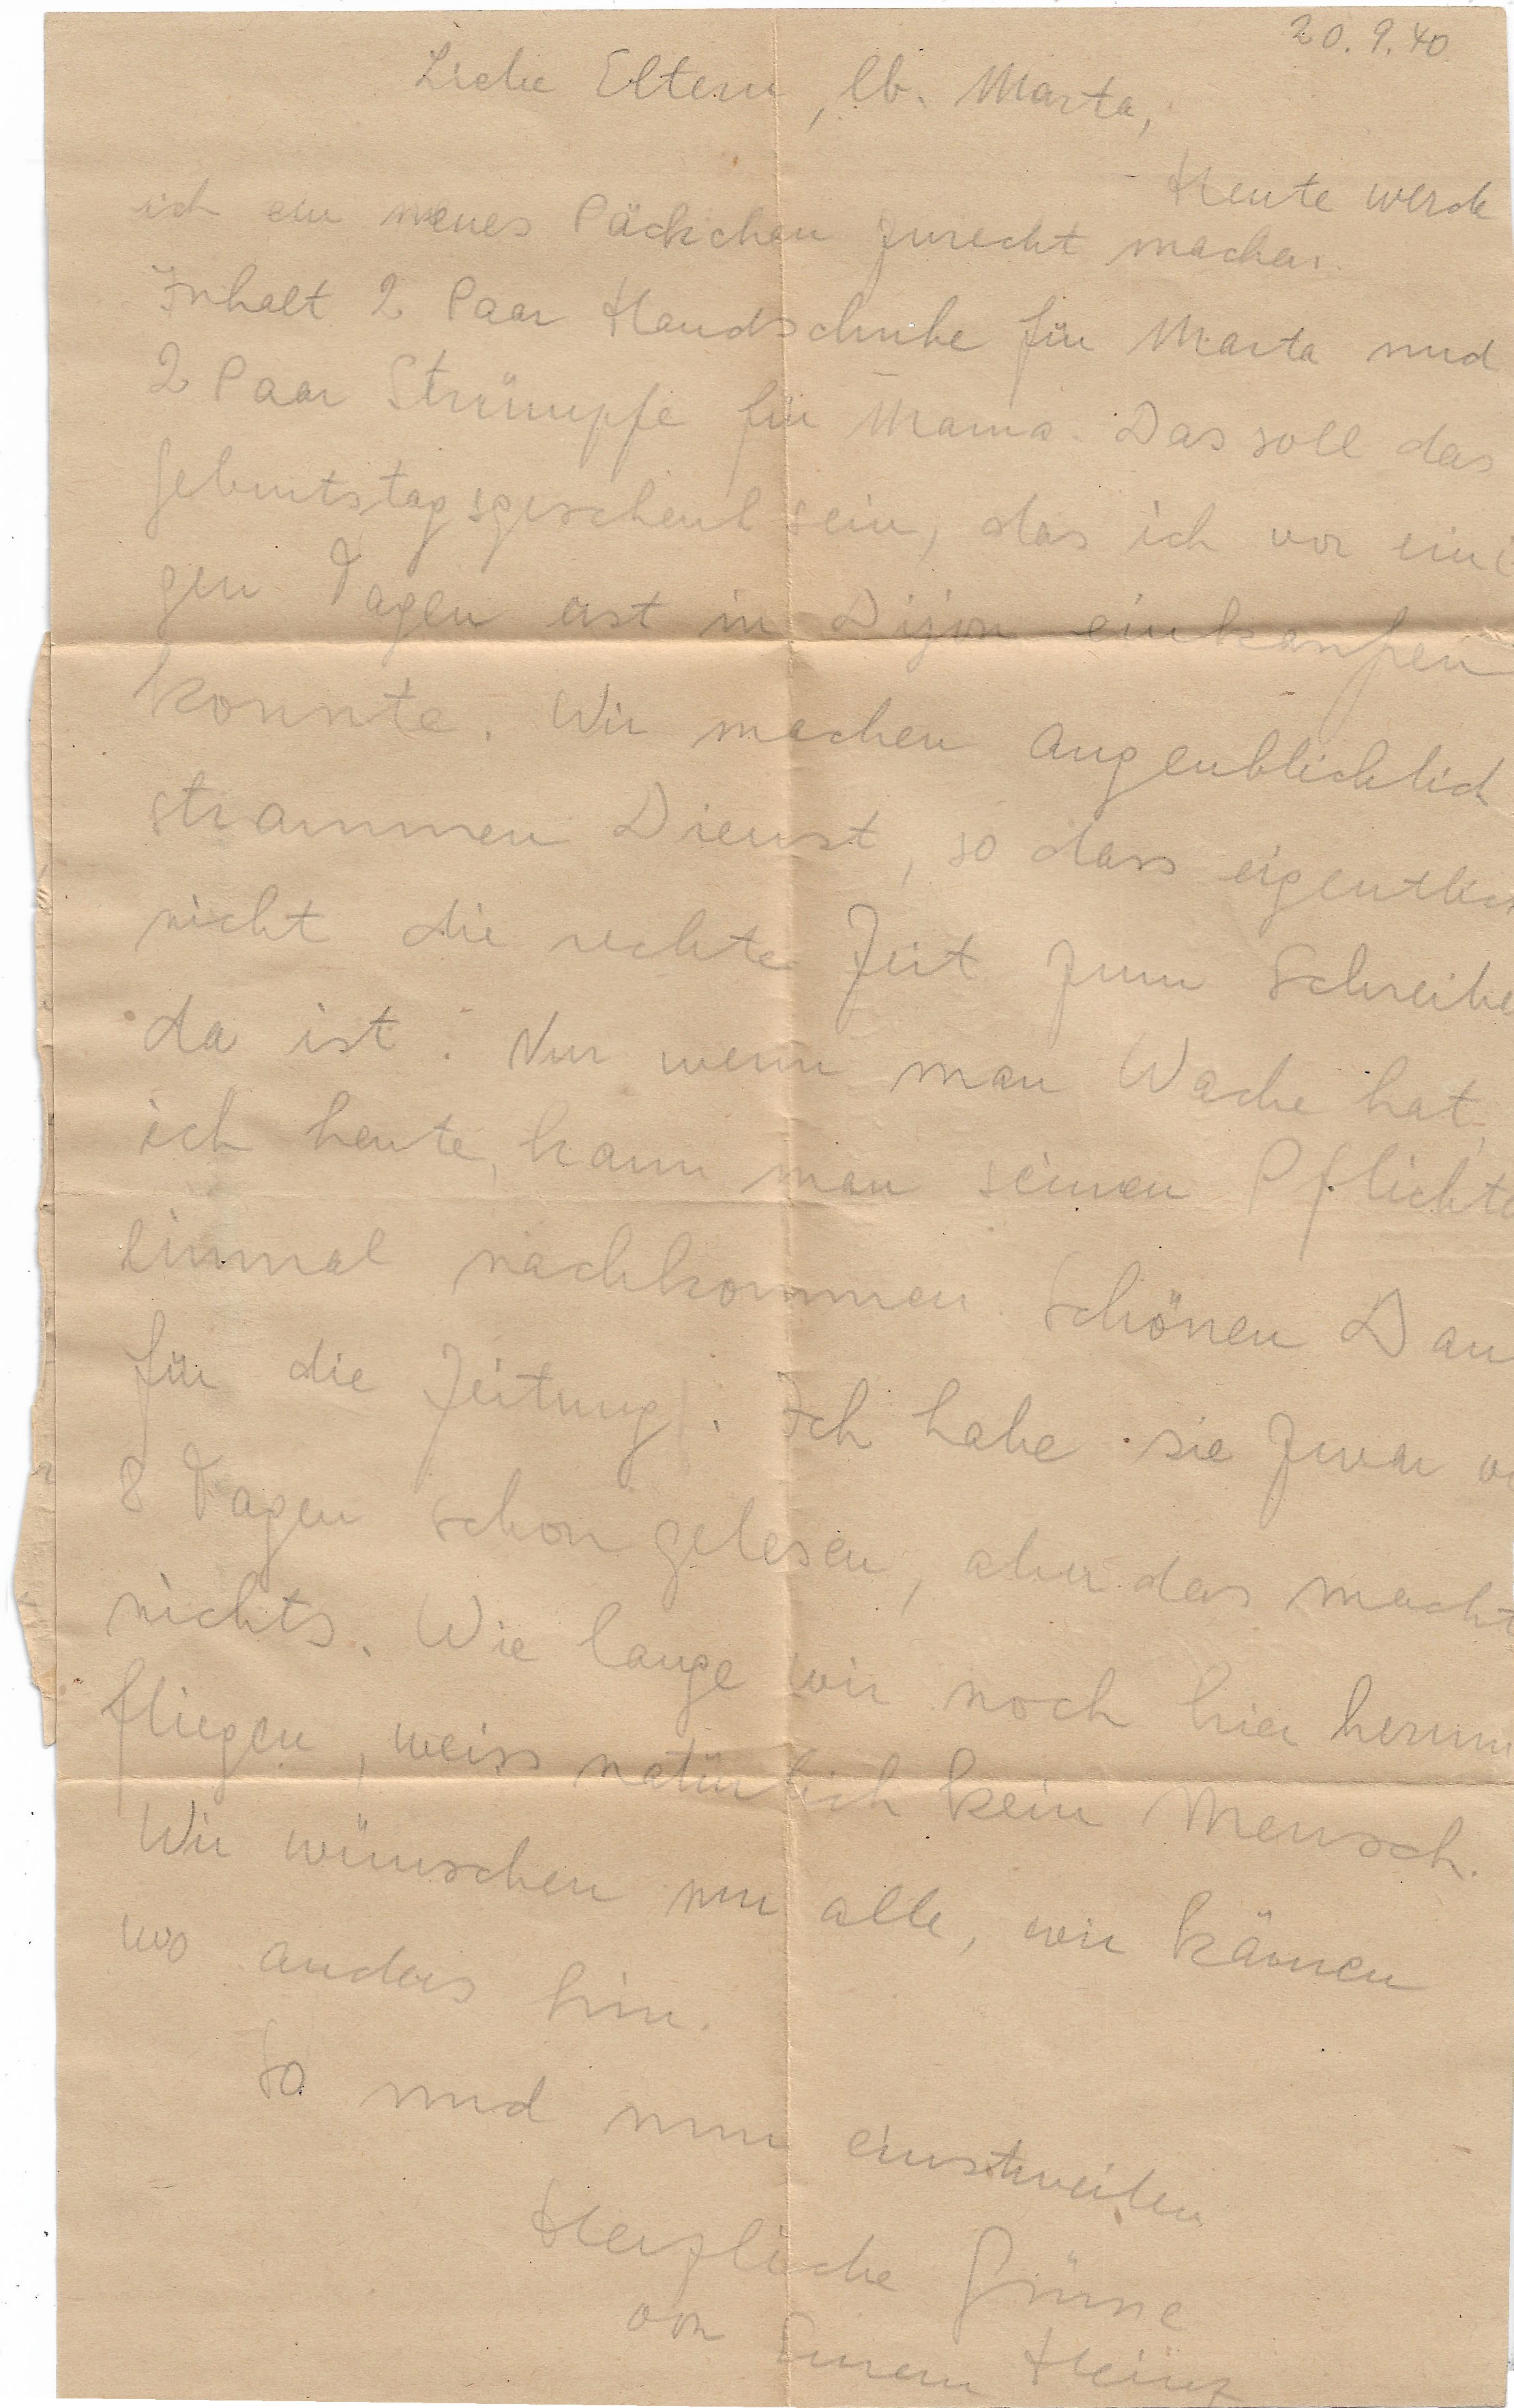 20.9.40
Liebe Eltern, lb. Marta,
Heute werde
ich ein neues Päckchen zurecht machen.
Inhalt 2 Paar Handschuhe für Marta und
2 Paar Strümpfe für Mama. Das soll das
Geburtstagsgeschenk sein, das ich vor eini
gen Tagen erst in Dijon einkaufen
konnte. Wir machen augenblicklich
strammen Dienst, so dass eigentlich
nicht die rechte Zeit zum Schreibe
da ist. Nur wenn man Wache hat,
ich heute, kann man seinen Pflichte
einmal nachkommen. Schönen Dan
für die Zeitung. Ich habe sie zwar vo
8 Tagen schon gelesen, aber das macht
nichts. Wie lange wir noch hier herum
fliegen, weiss natürlich kein Mensch.
Wir wünschen nur alle, wir kämen
wo anders hin.
So und nun einstweilen
Herzliche Grüsse
von Eurem Heinz